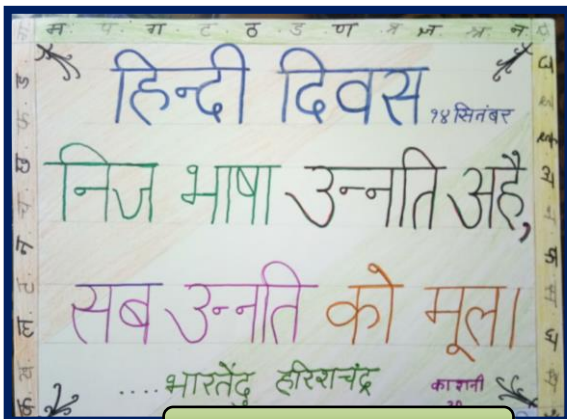 हिन्दी दिवस
१४ सितंबर
निज भाषा उन्नति अहै,
सब उन्नति को मूल।
....भारतेंदु हरिशचंद्र
काशनी